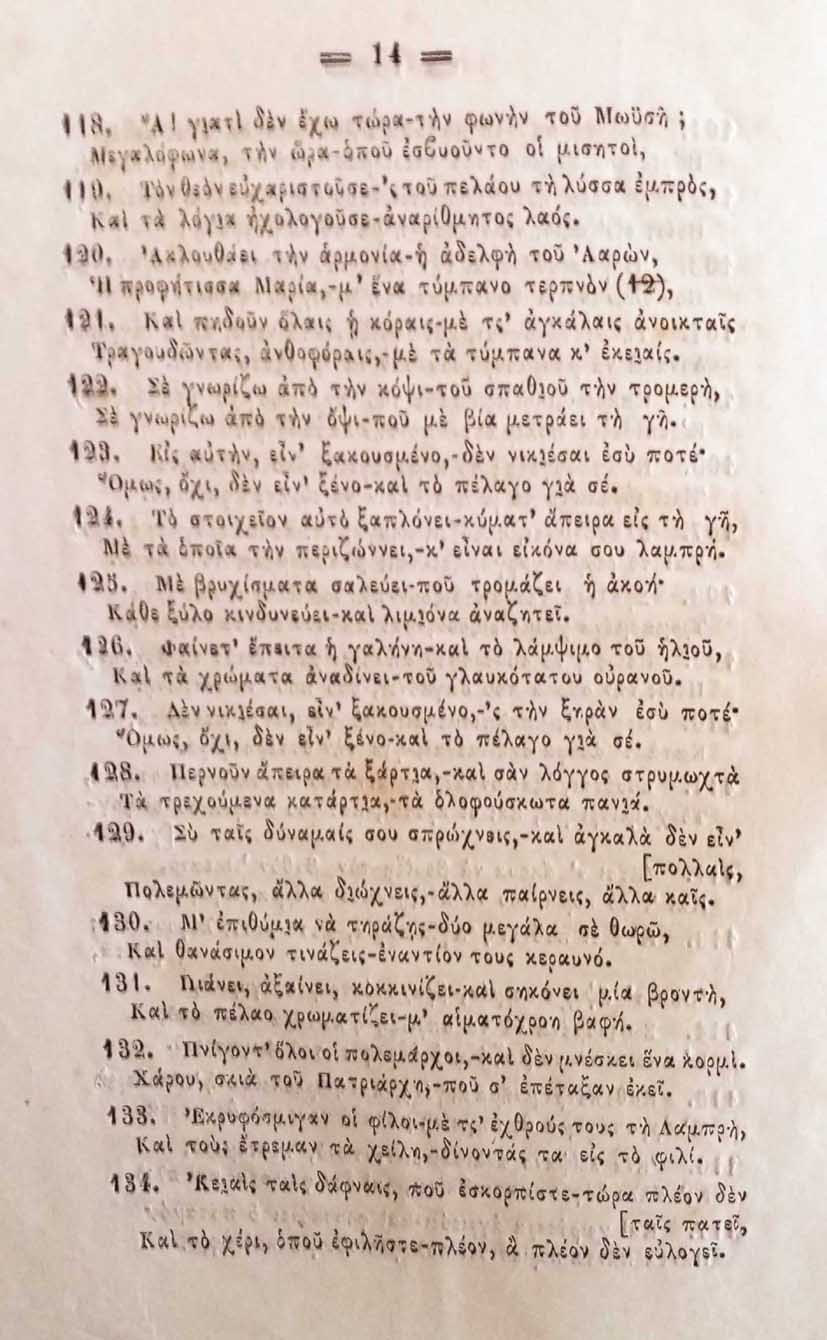 = 14 =
118. Ἄ! γιατὶ δὲν ἔχω τώρα-τὴν φωνὴν τοῦ Μωϋσῆ ;
Μεγαλόφωνα, τὴν ὥρα-ὁποῦ ἐσβυοῦντο οἱ μισητοὶ,
119. Τὸν θεὸν εὐχαριστοῦσε-'ς τοῦ πελάου τὴ λύσσα ἐμπρὸς,
Καὶ τὰ λόγια ἠχολογοῦσε-ἀναρίθμητος λαός.
120. Ἀκλουθάει τὴν ἁρμονία-ἡ ἀδελφὴ τοῦ Ἀαρὼν,
Ἡ προφήτισσα Μαρία,-μ' ἕνα τύμπανο τερπνὸν (12),
121. Καὶ πηδοῦν ὅλαις ᾑ κόραις-μὲ τς' ἀγκάλαις ἀνοικταῖς
Τραγουδῶντας, ἀνθοφόραις,-μὲ τὰ τύμπανα κ' ἐκειαίς.
122. Σὲ γνωρίζω ἀπὸ τὴν κόψι-τοῦ σπαθιοῦ τὴν τρομερὴ,
Σὲ γνωρίζω ἀπὸ τὴν ὄψι-ποῦ μὲ βία μετράει τὴ γῆ.
123. Εἰς αὐτὴν, εἶν' ξακουσμένο,-δὲν νικιέσαι ἐσὺ ποτέ·
Ὅμως, ὄχι, δὲν εἶν' ξένο-καὶ τὸ πέλαγο γιὰ σέ.
124. Τὸ στοιχεῖον αὐτὸ ξαπλόνει-κύματ' ἄπειρα εἰς τὴ γῆ,
Μὲ τὰ ὁποῖα τὴν περιζώννει,-κ' εἶναι εἰκόνα σου λαμπρή.
125. Μὲ βρυχίσματα σαλεύει-ποῦ τρομάζει ἡ ἀκοή·
Κάθε ξύλο κινδυνεύει-καὶ λιμιόνα ἀναζητεῖ.
126. Φαίνετ' ἔπειτα ἡ γαλήνη-καὶ τὸ λάμψιμο τοῦ ἡλιοῦ,
Καὶ τὰ χρώματα ἀναδίνει-τοῦ γλαυκότατου οὐρανοῦ.
127. Δὲν νικιέσαι, εἶν' ξακουσμένο,-'ς τὴν ξηρὰν ἐσὺ ποτέ·
Ὅμως, ὄχι, δὲν εἶν' ξένο-καὶ τὸ πέλαγο γιὰ σέ.
128. Περνοῦν ἄπειρα τὰ ξάρτια,-καὶ σὰν λόγγος στρυμωχτὰ
Τὰ τρεχούμενα κατάρτια,-τὰ ὁλοφούσκωτα πανιά.
129. Σὺ ταῖς δύναμαίς σου σπρώχνεις,-καὶ ἀγκαλὰ δὲν εἶν'
[πολλαὶς,
Πολεμῶντας, ἄλλα διώχνεις,-ἄλλα παίρνεις, ἄλλα καῖς.
130. Μ' ἐπιθύμια νὰ τηράζῃς-δύο μεγάλα σὲ θωρῶ,
Καὶ θανάσιμον τινάζεις-ἐναντίον τους κεραυνό.
131. Πιάνει, ἀξαίνει, κοκκινίζει-καὶ σηκόνει μία βροντὴ,
Καὶ τὸ πέλαο χρωματίζει-μ' αἱματόχροη βαφή.
132. Πνίγοντ' ὅλοι οἱ πολεμάρχοι,-καὶ δὲν μνέσκει ἕνα κορμὶ.
Χάρου, σκιὰ τοῦ Πατριάρχη,-ποῦ σ' ἐπέταξαν ἐκεῖ.
133. Ἐκρυφόσμιγαν οἱ φίλοι-μὲ τς' ἐχθρούς τους τὴ Λαμπρὴ,
Καὶ τοὺς ἔτρεμαν τὰ χείλη,-δίνοντάς τα εἰς τὸ φιλί.
134. Κειαὶς ταὶς δάφναις, ποῦ ἐσκορπίστε-τώρα πλέον δὲν
[ταῖς πατεῖ,
Καὶ τὸ χέρι, ὁποῦ ἐφιλῆστε-πλέον, ἂ πλέον δὲν εὐλογεῖ.